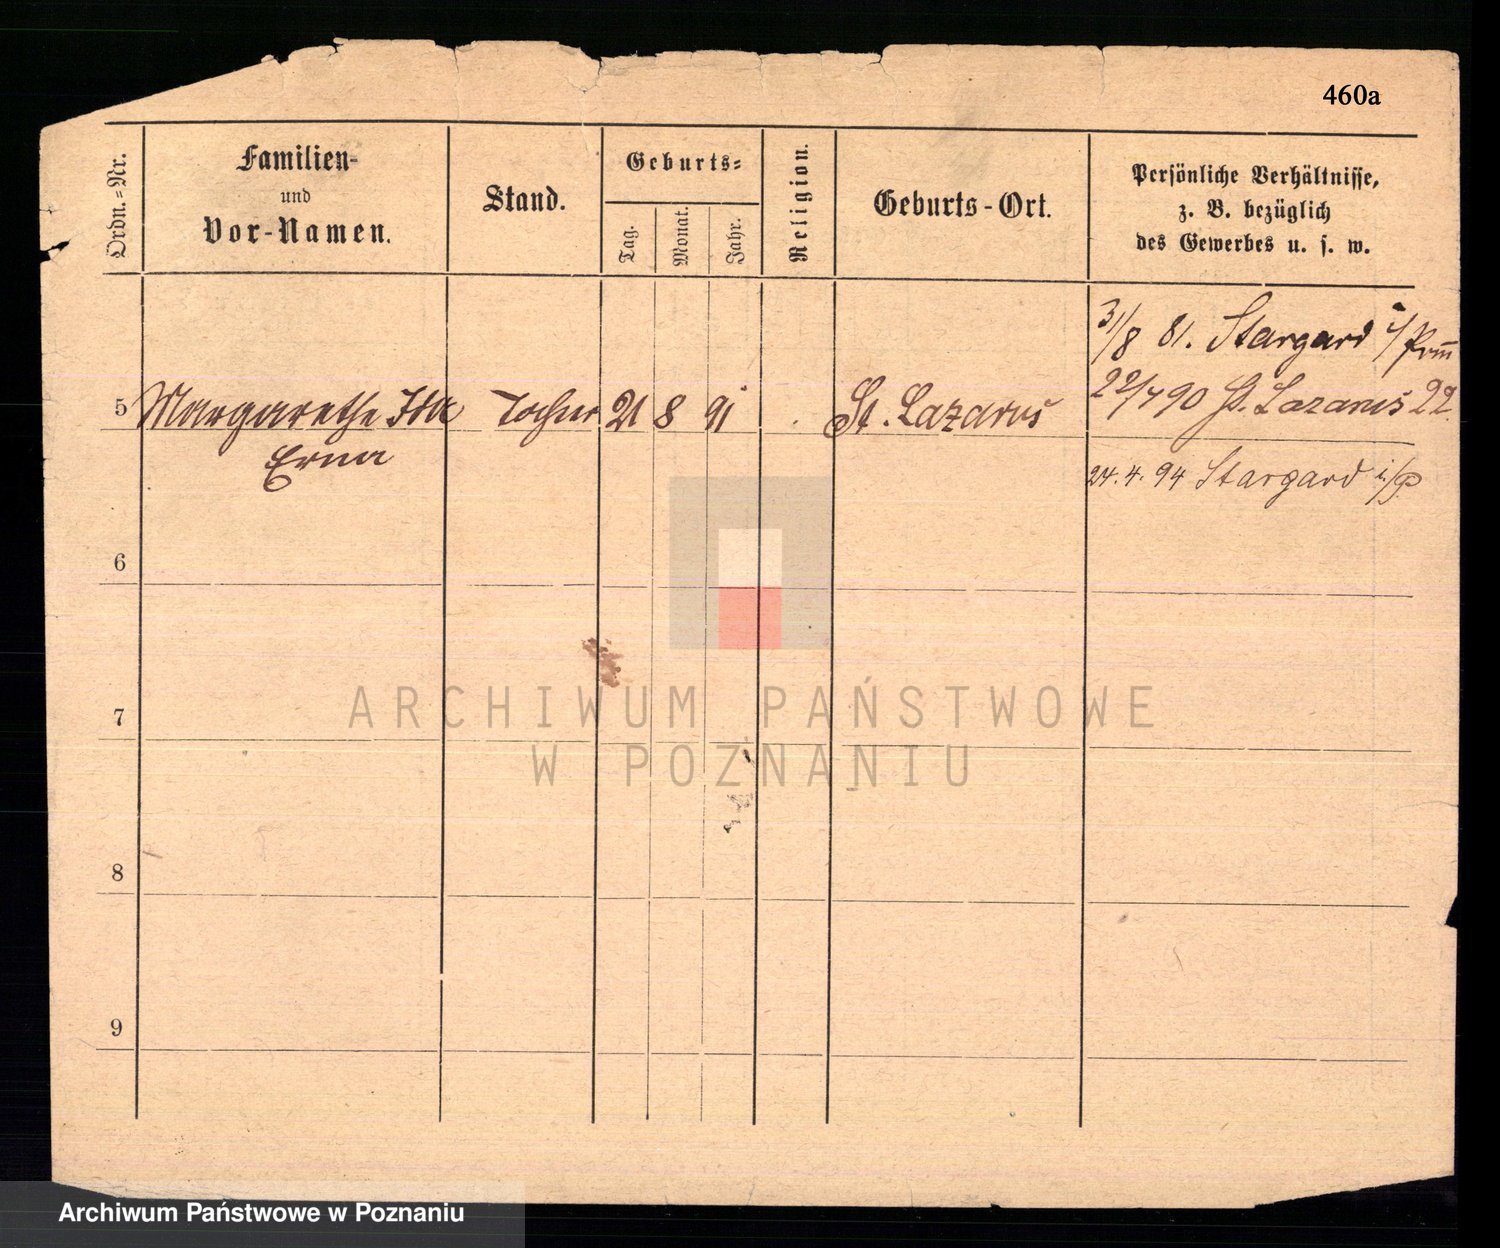 460a
Ordn.-Nr.
Familien-
und
Vor-Namen.
Stand.
Geburts-
Tag.
Monat.
Jahr.
Religion.
Geburts-Ort.
Persönliche Verhältnisse,
z. B. bezüglich
des Gewerbes u. s. w.
31/8 81. Stargard i/Pom
5 Margarethe Ida Tochter 21 8 91 St. Lazarus 22/7 90 St. Lazarus 22
Erna
24.4.94 Stargard i/P
6
7
8
9
ARCHIWUM PAŃSTWOWE
W POZNANIU
Archiwum Państwowe w Poznaniu